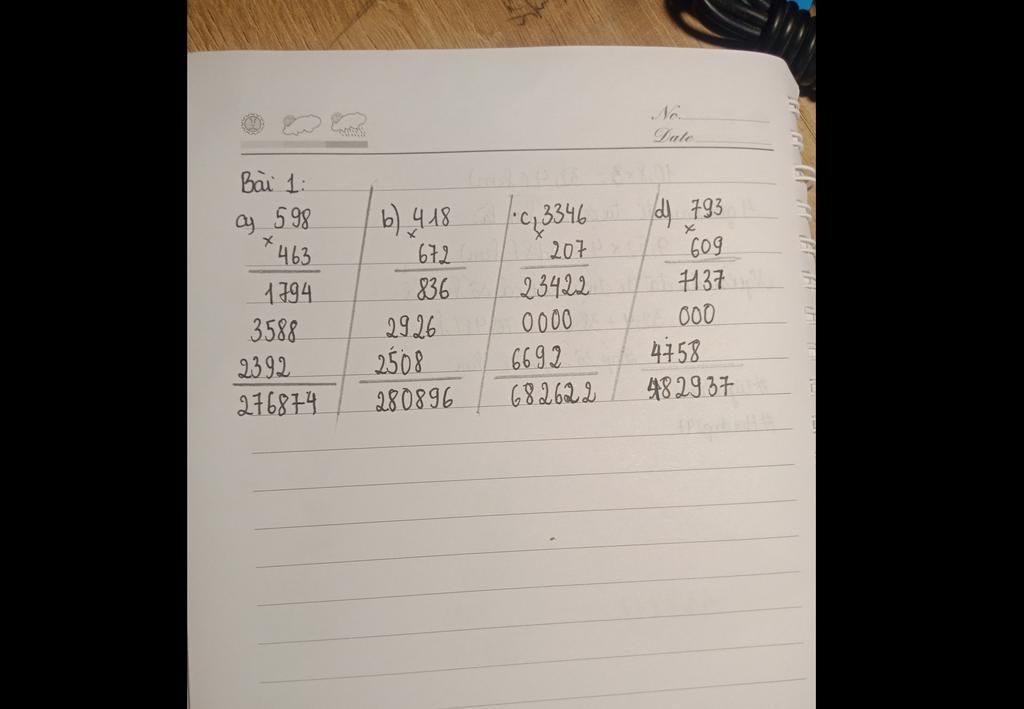 No.
Date
Bài 1:
a) 598 b) 418 c, 3346 d) 793
× 463 × 672 × 207 × 609
1794 836 23422 7137
3588 2926 0000 000
2392 2508 6692 4758
276874 280896 682622 482937